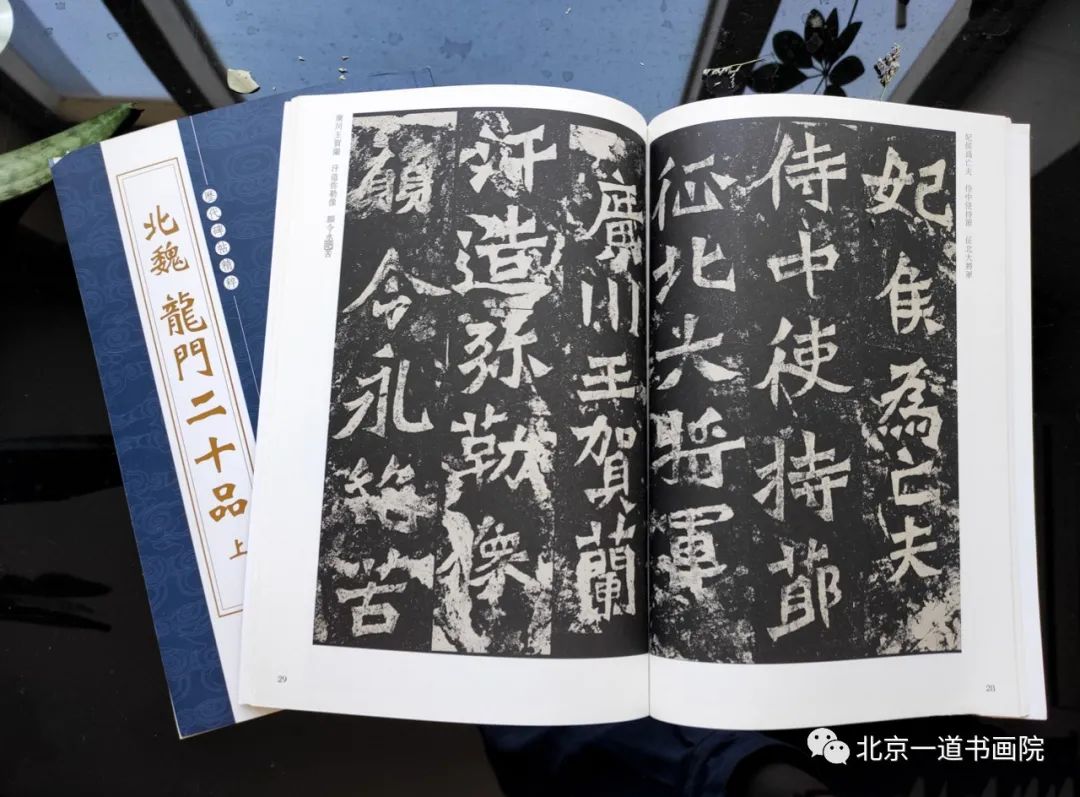 歷代碑帖精粹
北魏 龍門二十品 上
妃侯為亡夫 侍中使持節 征北大將軍
妃侯為亡夫
侍中使持節
征北大將軍
28
廣川王賀蘭
汗造弥勒像
願令永絕苦
廣川王賀蘭 汗造弥勒像 願令永絕苦
29
北京一道书画院